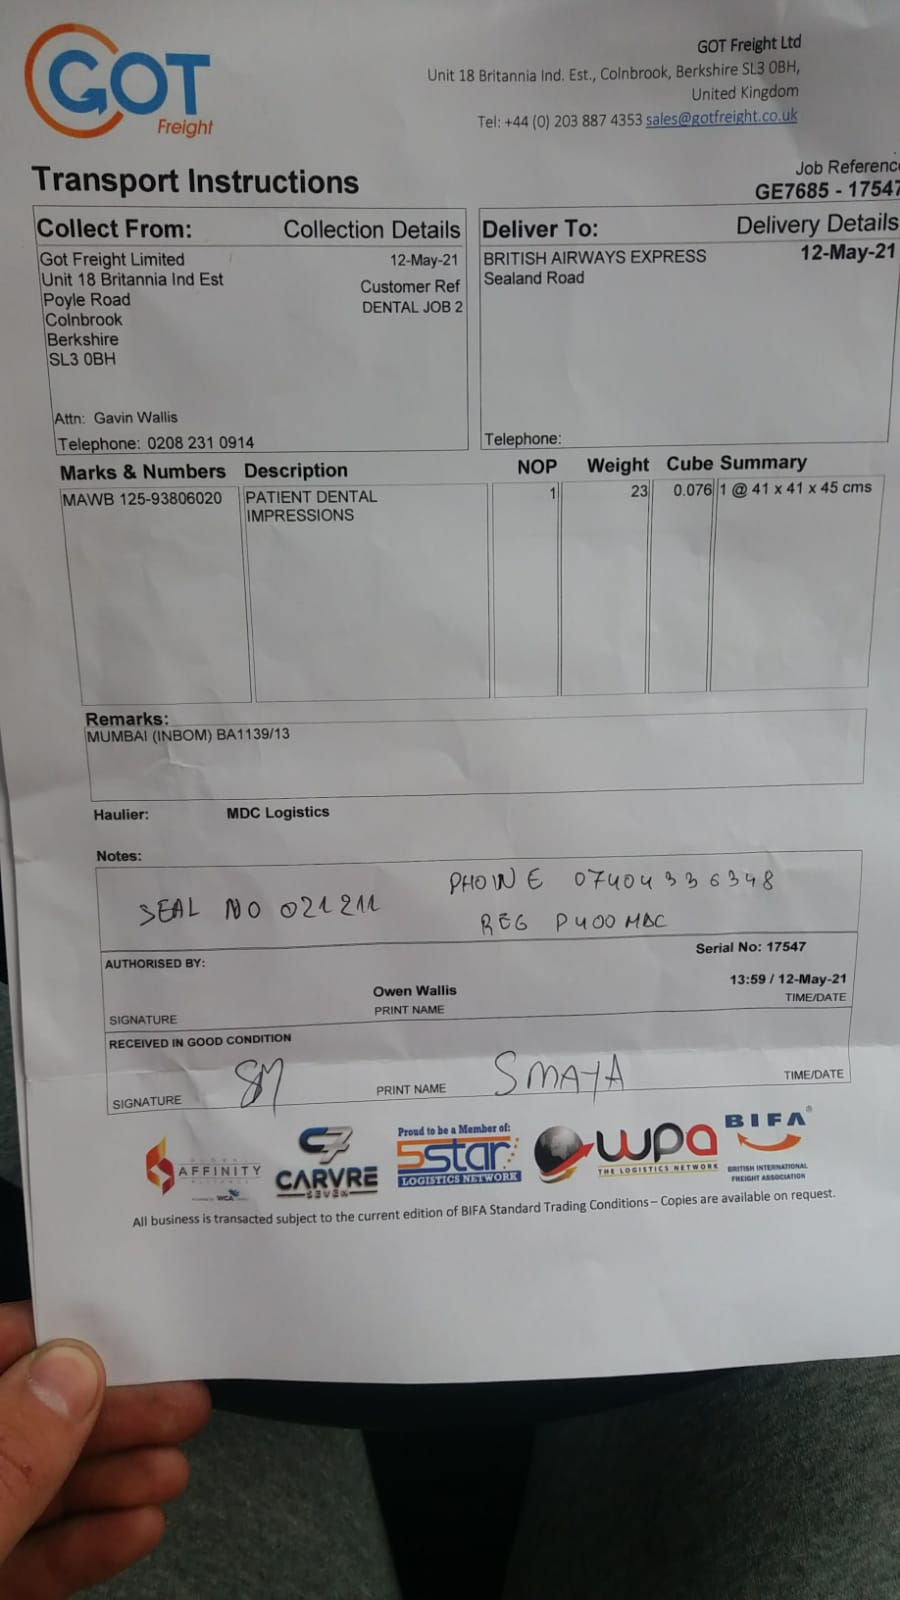 GOT
Freight
GOT Freight Ltd
Unit 18 Britannia Ind. Est., Colnbrook, Berkshire SL3 0BH,
United Kingdom
Tel: +44 (0) 203 887 4353 sales@gotfreight.co.uk
Transport Instructions
Job Reference
GE7685 - 17547
Collect From: Collection Details
Got Freight Limited 12-May-21
Unit 18 Britannia Ind Est
Poyle Road
Colnbrook
Berkshire
SL3 0BH
Customer Ref
DENTAL JOB 2
Attn: Gavin Wallis
Telephone: 0208 231 0914
Deliver To: Delivery Details
BRITISH AIRWAYS EXPRESS 12-May-21
Sealand Road
Telephone:
Marks & Numbers Description NOP Weight Cube Summary
MAWB 125-93806020 PATIENT DENTAL 1 23 0.076 1 @ 41 x 41 x 45 cms
IMPRESSIONS
Remarks:
MUMBAI (INBOM) BA1139/13
Haulier: MDC Logistics
Notes:
SEAL NO 021211 PHOINE 07404336348
REG P400 MDC
Serial No: 17547
AUTHORISED BY:
Owen Wallis 13:59 / 12-May-21
SIGNATURE PRINT NAME TIME/DATE
RECEIVED IN GOOD CONDITION
SM SMAYA
SIGNATURE PRINT NAME TIME/DATE
AFFINITY
WCA
C7
CARVRE
SEVEN
Proud to be a Member of:
5star
LOGISTICS NETWORK
wpa
THE LOGISTICS NETWORK
BIFA®
BRITISH INTERNATIONAL
FREIGHT ASSOCIATION
All business is transacted subject to the current edition of BIFA Standard Trading Conditions – Copies are available on request.